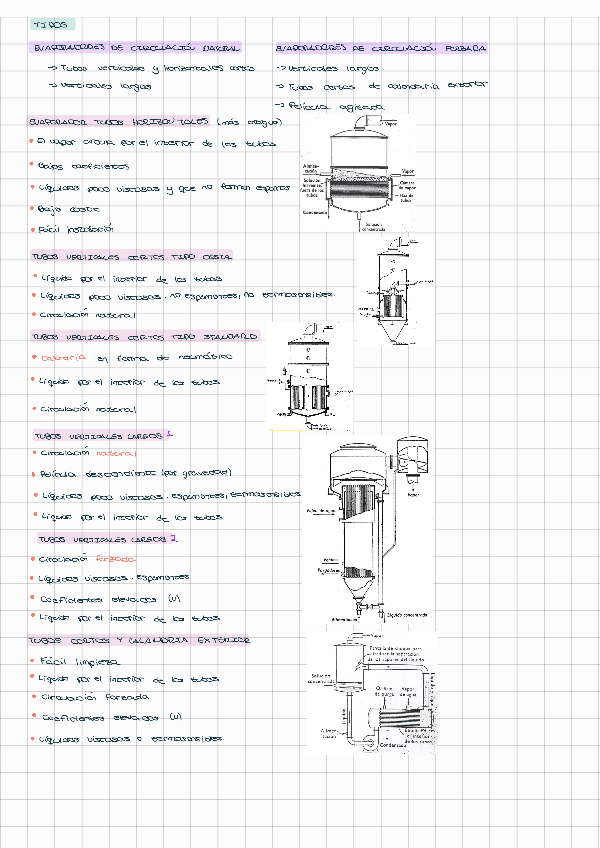 TIPOS
EVAPORADORES DE CIRCULACIÓN NATURAL
→ Tubos verticales y horizontales cortos
→ Verticales largos
EVAPORADORES DE CIRCULACIÓN FORZADA
→ Verticales largos
→ Tubos cortos de calandria exterior
→ Película agitada
EVAPORADOR TUBOS HORIZONTALES (más antiguo)
• El vapor circula por el interior de los tubos
• Bajos coeficientes
• Líquidos poco viscosos y que no forman espumas
• Bajo coste
• Fácil instalación
Vapor
Alimentación
Vapor
Solución hirviendo fuera de los tubos
Cámara de vapor
Haz de tubos
Condensado
Solución concentrada
TUBOS VERTICALES CORTOS TIPO CESTA
• Líquido por el interior de los tubos
• Líquidos poco viscosos, no espumantes, no termosensibles.
• Circulación natural
TUBOS VERTICALES CORTOS TIPO STANDARD
• Calandria en forma de neumático
• Líquido por el interior de los tubos
• Circulación natural
TUBOS VERTICALES LARGOS 1
• Circulación natural
• Película descendiente (por gravedad)
• Líquidos poco viscosos, espumantes, termosensibles
• Líquido por el interior de los tubos
Vapor
Vapor de agua
Purgadores
Alimentación
Líquido concentrado
TUBOS VERTICALES LARGOS 2
• Circulación forzada
• Líquidos viscosos, espumantes
• Coeficientes elevados (U)
• Líquido por el interior de los tubos
TUBOS CORTOS Y CALANDRIA EXTERIOR
• Fácil limpieza
• Líquido por el interior de los tubos
• Circulación forzada
• Coeficientes elevados (U)
• Líquidos viscosos o termosensibles
Vapor
Pantalla de choque para facilitar la separación de los vapores del líquido
Solución concentrada
Orificio de purga
Vapor de agua
Alimentación
Condensado